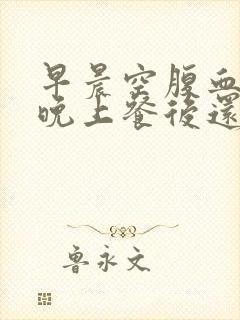 早晨空腹血
晚上餐後還
魯永文